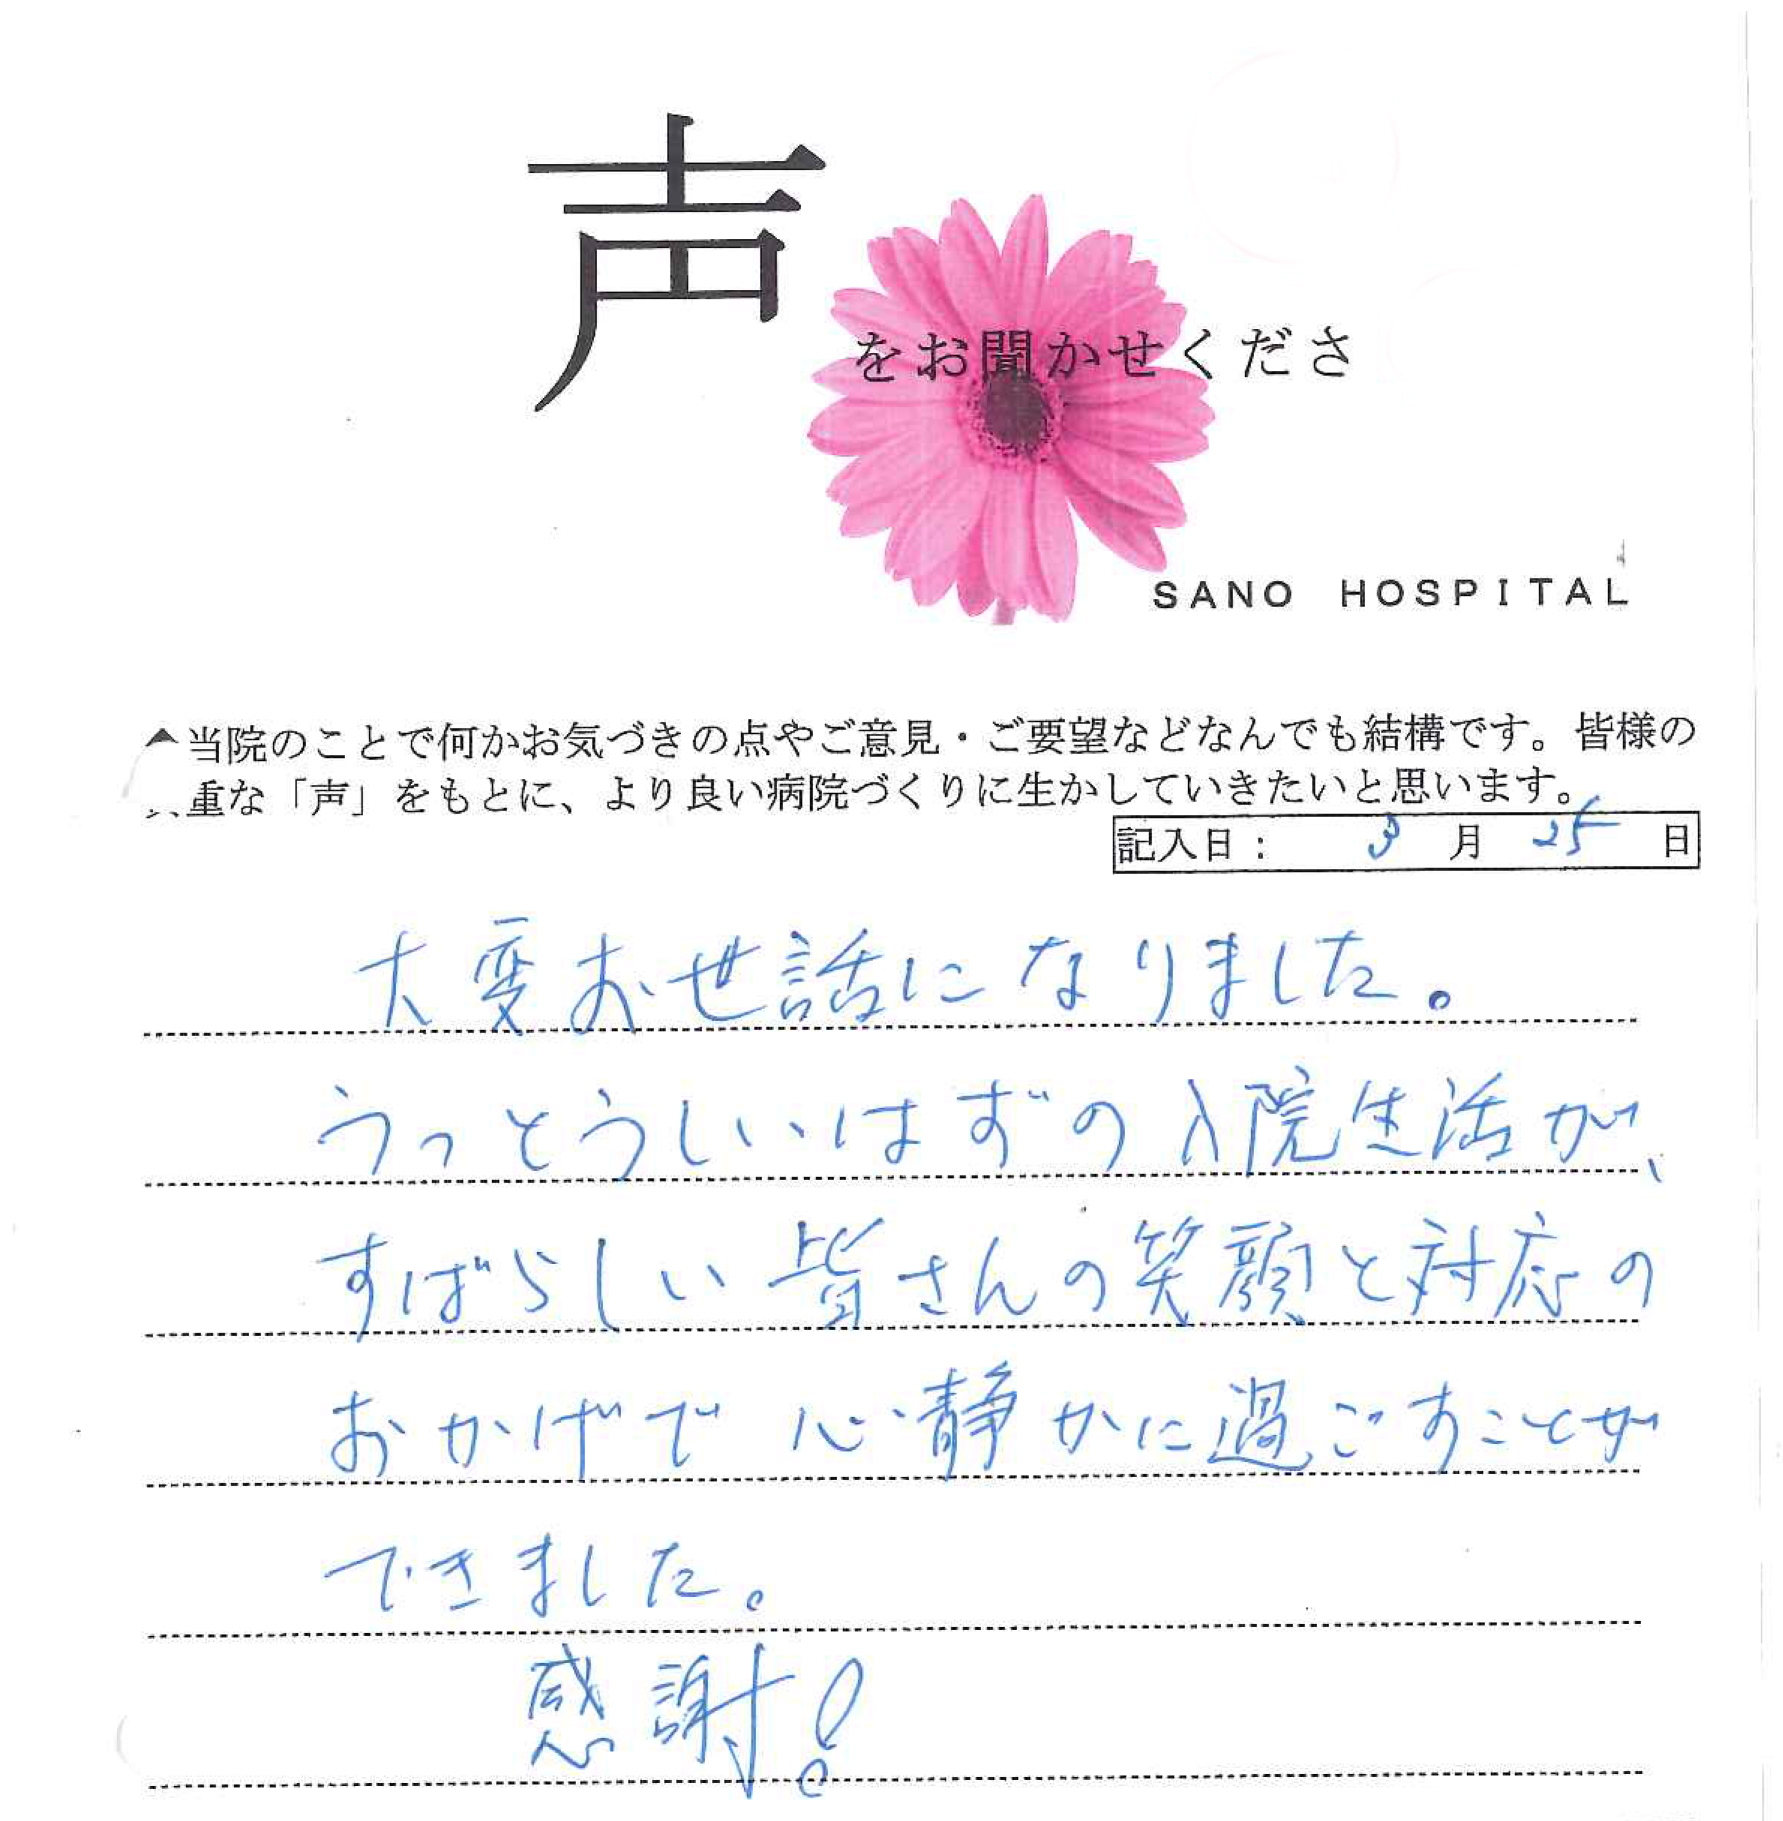 声
をお聞かせくださ
SANO HOSPITAL
当院のことで何かお気づきの点やご意見・ご要望などなんでも結構です。皆様の
重な「声」をもとに、より良い病院づくりに生かしていきたいと思います。
記入日: 3 月 25 日
大変お世話になりました。
うっとうしいはずの入院生活が、
すばらしい皆さんの笑顔と対応の
おかげで心静かに過ごすことが
できました。
感謝!